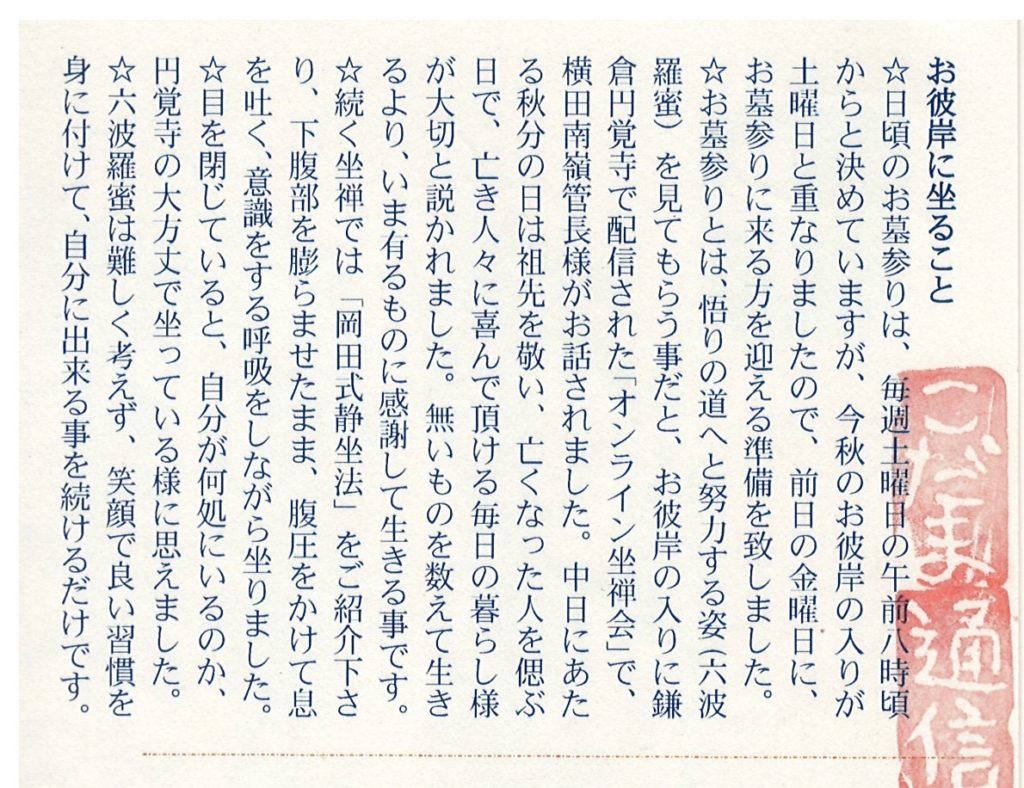 お彼岸に坐ること
☆日頃のお墓参りは、毎週土曜日の午前八時頃
からと決めていますが、今秋のお彼岸の入りが
土曜日と重なりましたので、前日の金曜日に、
お墓参りに来る方を迎える準備を致しました。
☆お墓参りとは、悟りの道へと努力する姿(六波
羅蜜)を見てもらう事だと、お彼岸の入りに鎌
倉円覚寺で配信された「オンライン坐禅会」で、
横田南嶺管長様がお話されました。中日にあた
る秋分の日は祖先を敬い、亡くなった人を偲ぶ
日で、亡き人々に喜んで頂ける毎日の暮らし様
が大切と説かれました。無いものを数えて生き
るより、いま有るものに感謝して生きる事です。
☆続く坐禅では「岡田式静坐法」をご紹介下さ
り、下腹部を膨らませたまま、腹圧をかけて息
を吐く、意識をする呼吸をしながら坐りました。
☆目を閉じていると、自分が何処にいるのか、
円覚寺の大方丈で坐っている様に思えました。
☆六波羅蜜は難しく考えず、笑顔で良い習慣を
身に付けて、自分に出来る事を続けるだけです。
こだま通信